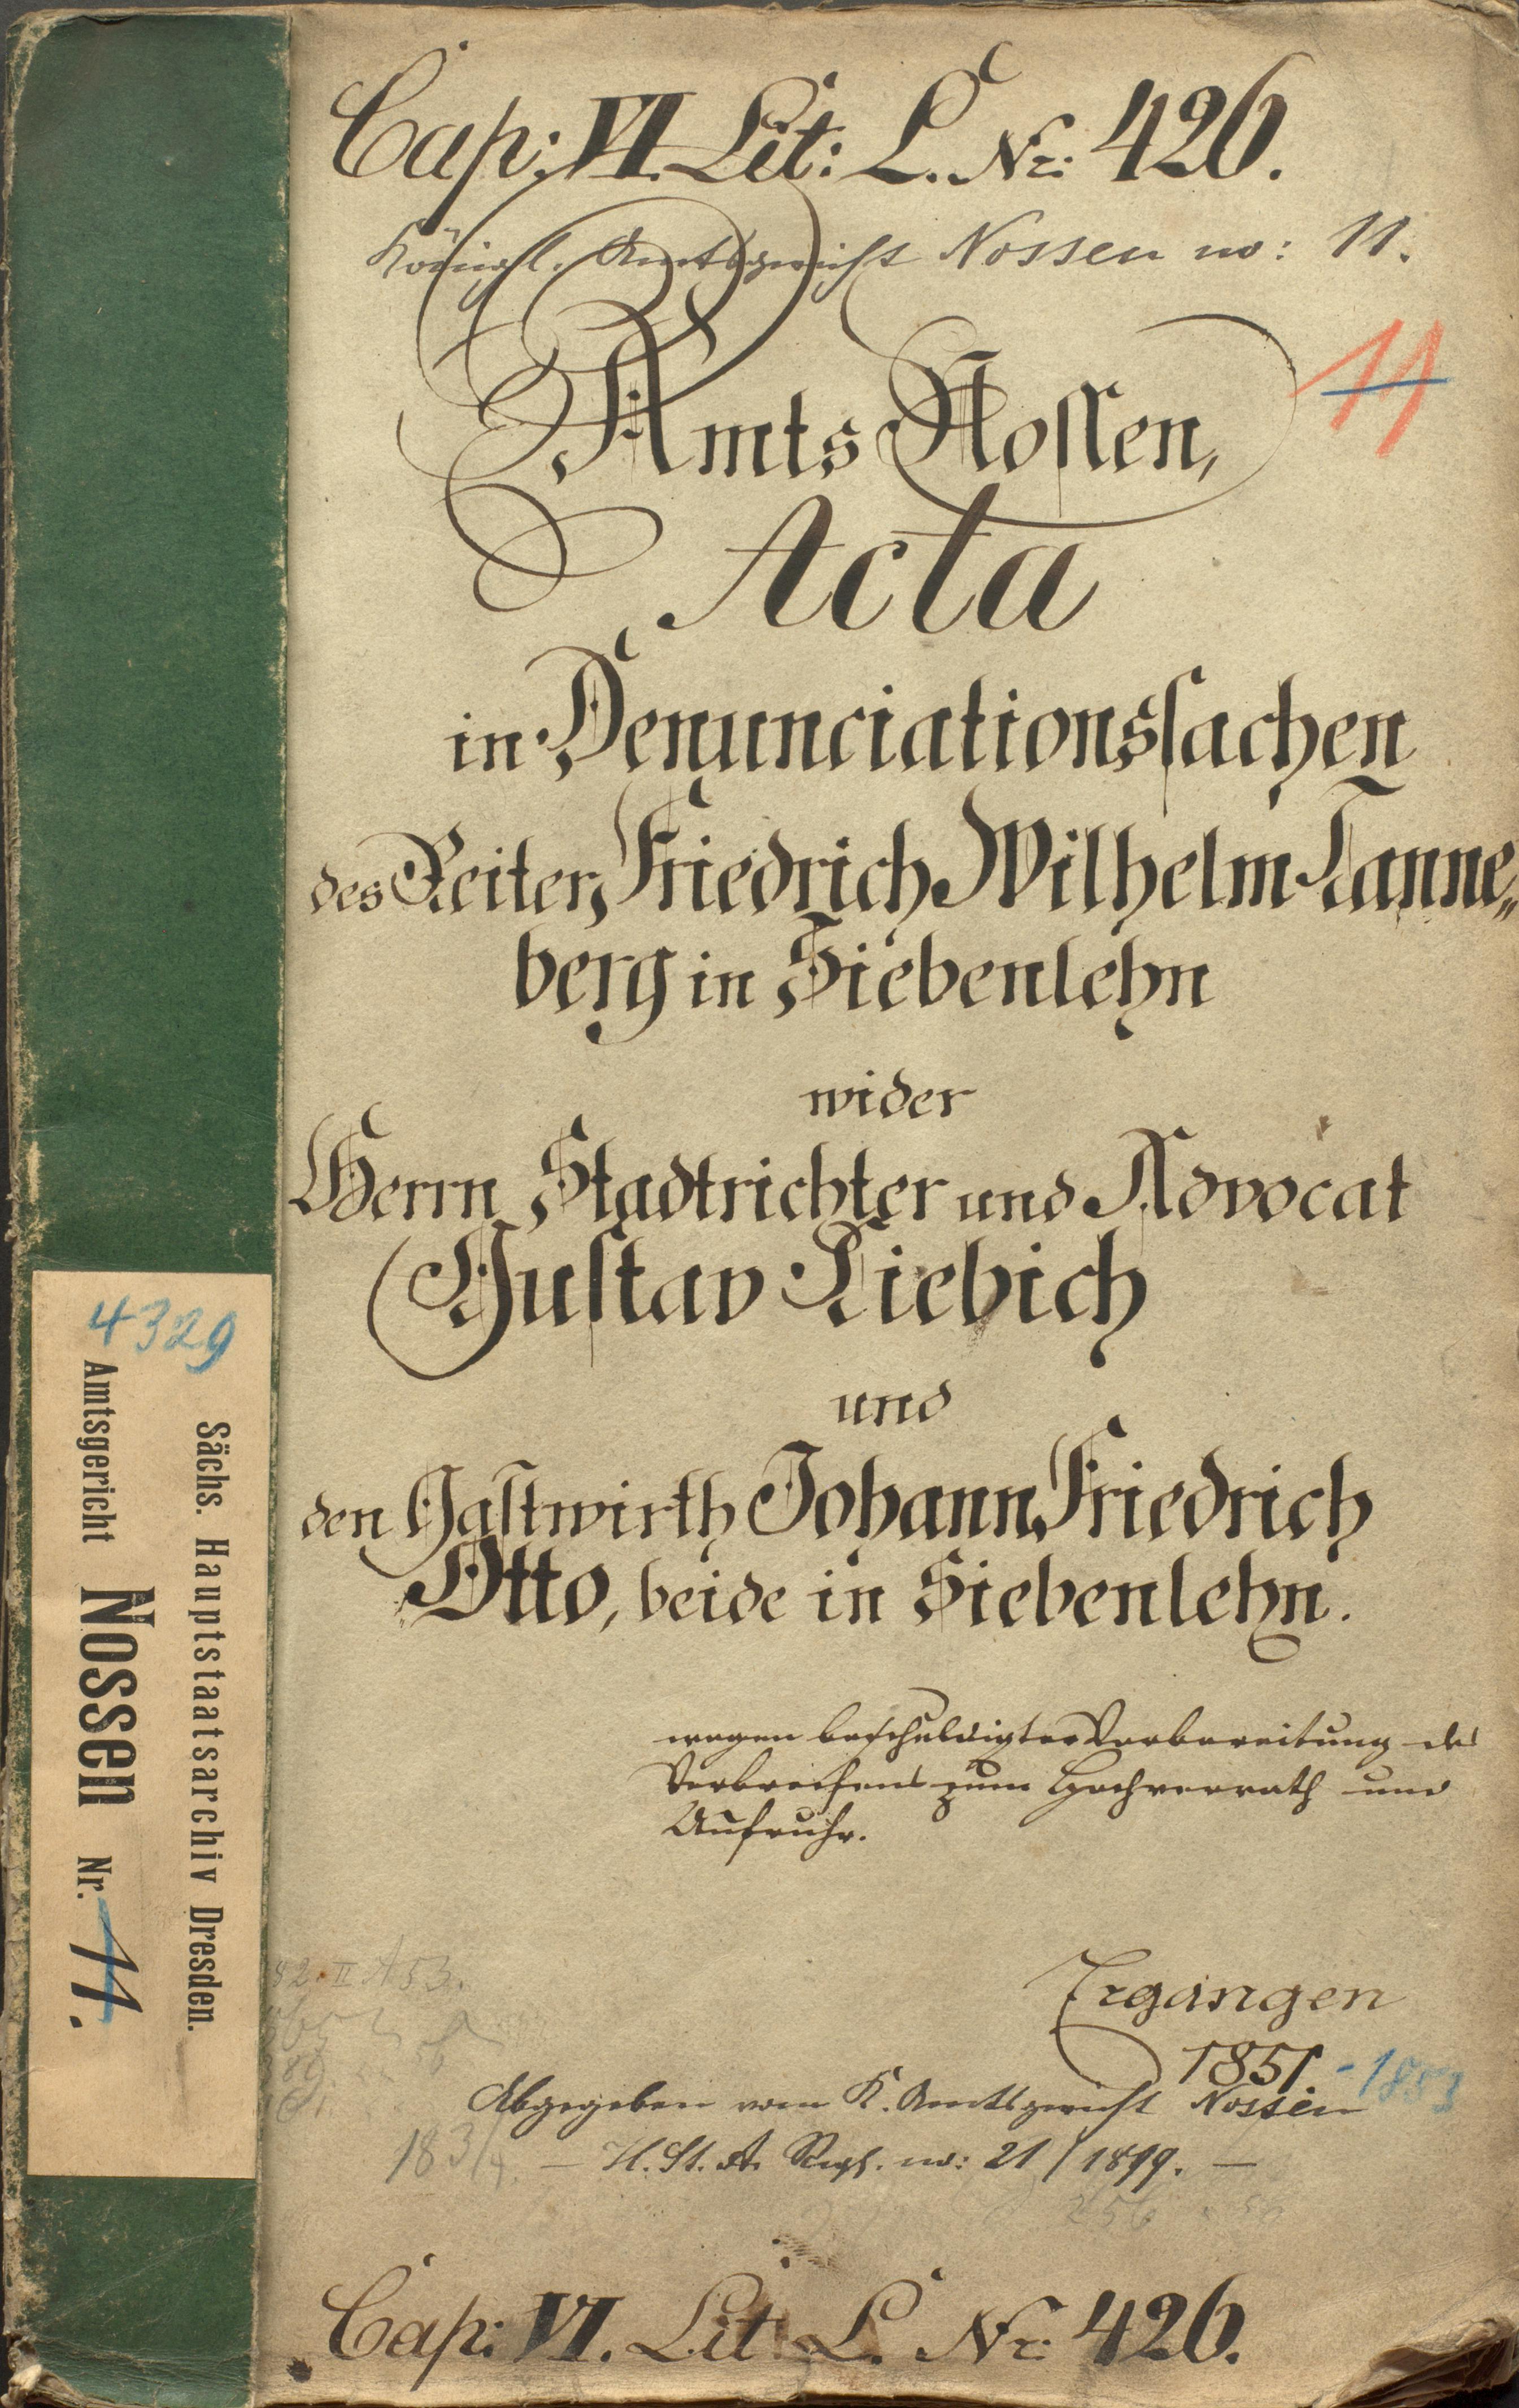 Cap: VI. Lit: L. Nr: 426.
Königl. Amtsgericht Nossen no: 11.
11
Amts Nossen,
Acta
in Denunciationssachen
des Reiter, Friedrich Wilhelm Tanne„
berg in Siebenlehn
wider
Herrn Stadtrichter und Advocat
Gustav Liebich
und
den Gastwirth Johann Friedrich
Otto, beide in Siebenlehn.
wegen beschuldigter Vorbereitung des
Verbrechens zum Hochverrath und
Aufruhr.
Ergangen
1851 - 1853
Abgegeben vom K. Amtsgericht Nossen
— H. St. A. Regl. no: 21 / 1899. —
183/4.
82. II A 53.
Cap: VI. Lit L. Nr: 426.
4329
Sächs. Hauptstaatsarchiv Dresden.
Amtsgericht Nossen Nr. 11.